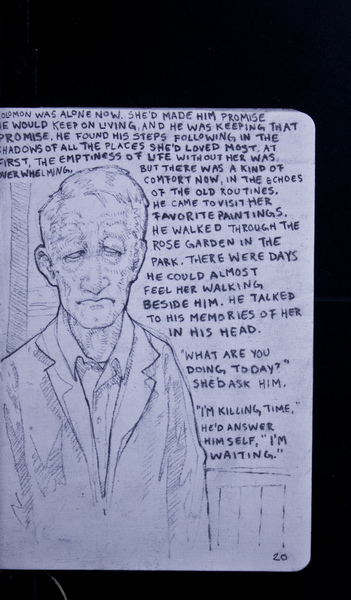 OLOMON WAS ALONE NOW. SHE'D MADE HIM PROMISE
HE WOULD KEEP ON LIVING, AND HE WAS KEEPING THAT
PROMISE. HE FOUND HIS STEPS FOLLOWING IN THE
SHADOWS OF ALL THE PLACES SHE'D LOVED MOST. AT
FIRST, THE EMPTINESS OF LIFE WITHOUT HER WAS
OVERWHELMING. BUT THERE WAS A KIND OF
COMFORT NOW, IN THE ECHOES
OF THE OLD ROUTINES.
HE CAME TO VISIT HER
FAVORITE PAINTINGS.
HE WALKED THROUGH THE
ROSE GARDEN IN THE
PARK. THERE WERE DAYS
HE COULD ALMOST
FEEL HER WALKING
BESIDE HIM. HE TALKED
TO HIS MEMORIES OF HER
IN HIS HEAD.
"WHAT ARE YOU
DOING, TODAY?"
SHE'D ASK HIM.
"I'M KILLING TIME,"
HE'D ANSWER
HIMSELF, "I'M
WAITING."
20